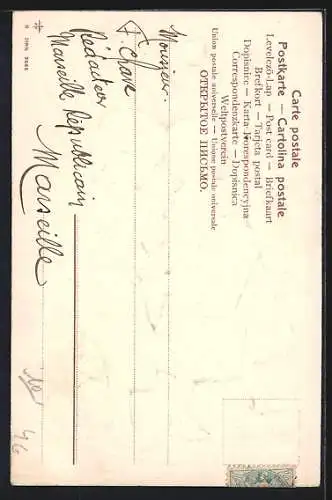 Carte postale
Postkarte — Cartolina postale
Levelező-Lap — Post card — Briefkaart
Brefkort — Tarjeta postal
Dopisnice — Karta Korespondencyjna
Correspondenzkarte — Dopisnica
Weltpostverein
Union postale universelle — Unione postale universale
ОТКРЫТОЕ ПИСЬМО.
Monsieur
F. Chave
Rédacteur
Marseille Républicain
Marseille